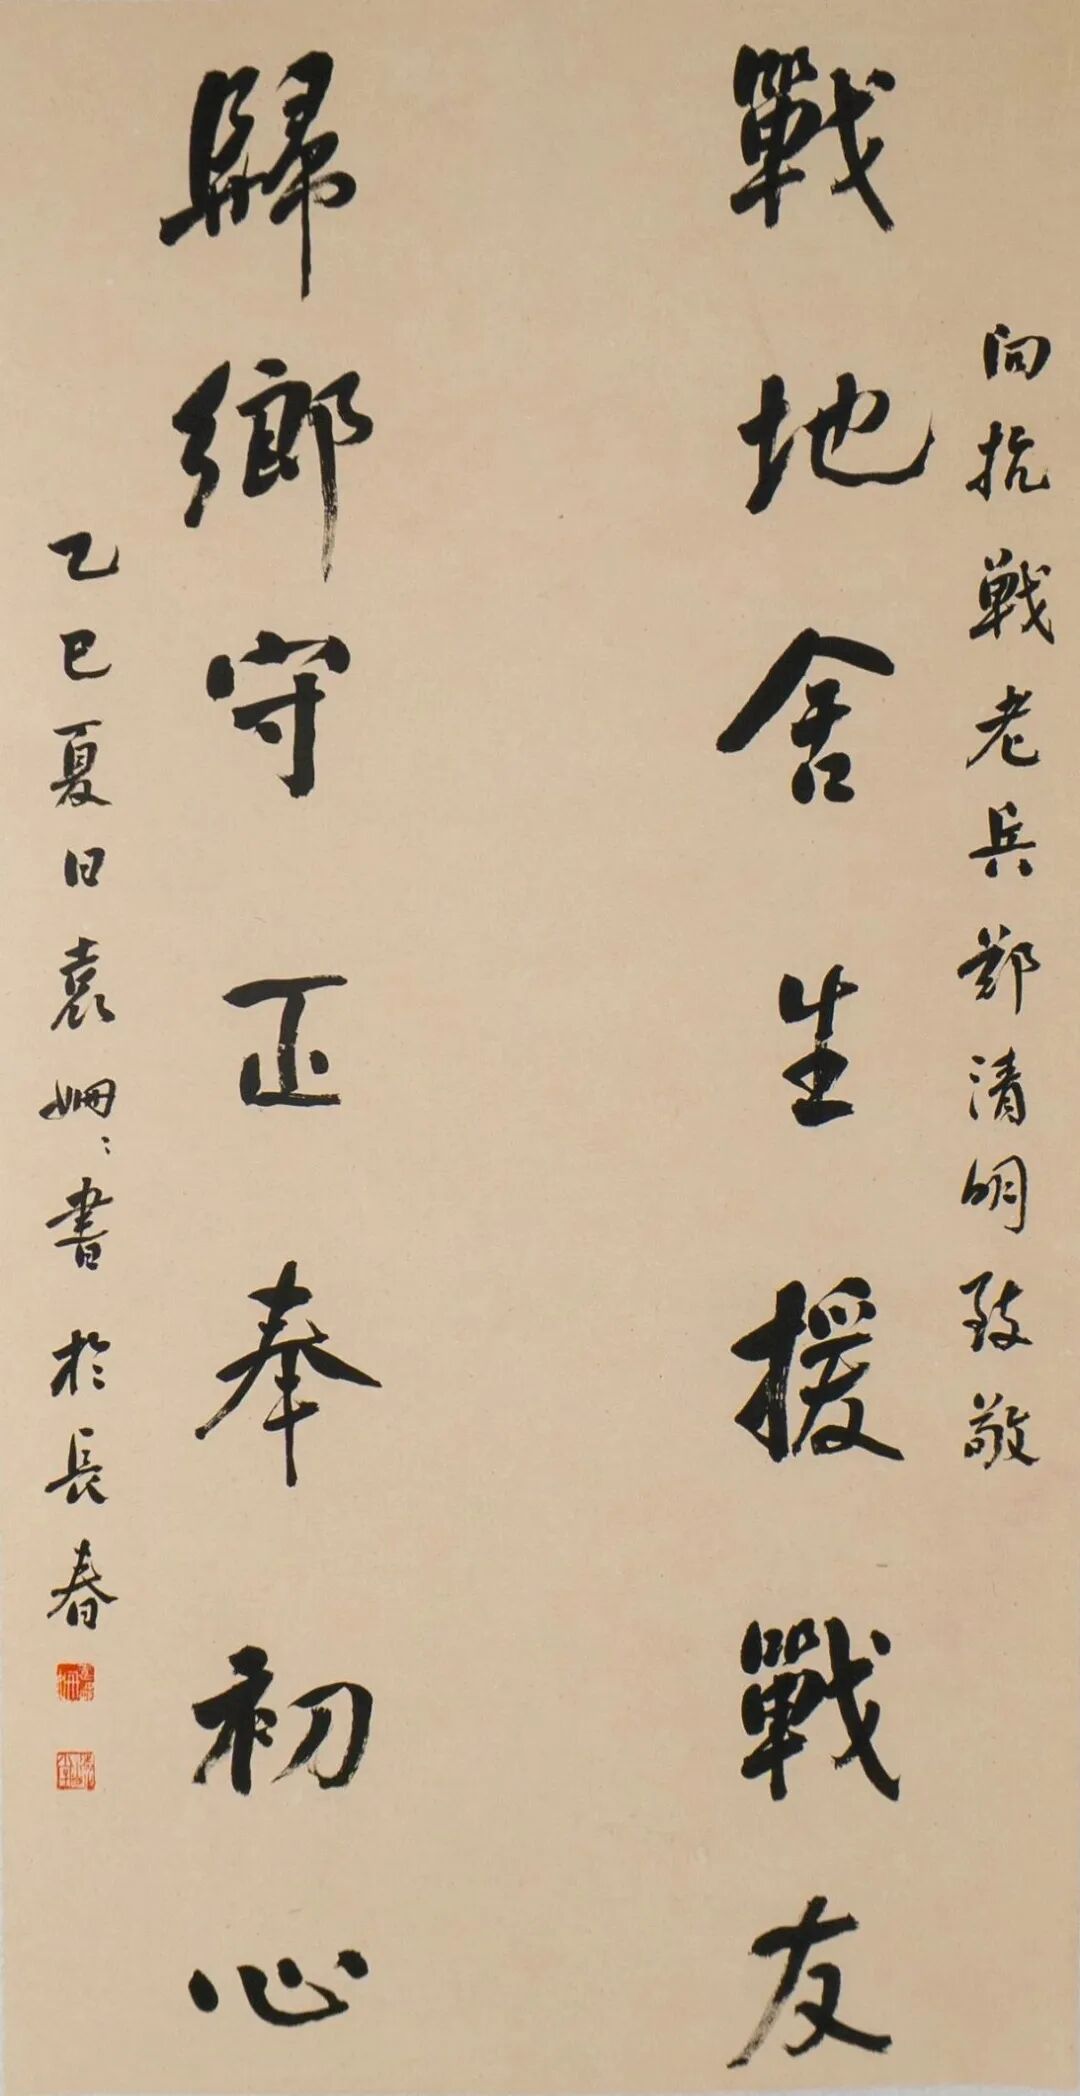 向抗戰老兵鄭清明致敬
戰地舍生援戰友
歸鄉守正奉初心
乙巳夏日袁姍姍書於長春